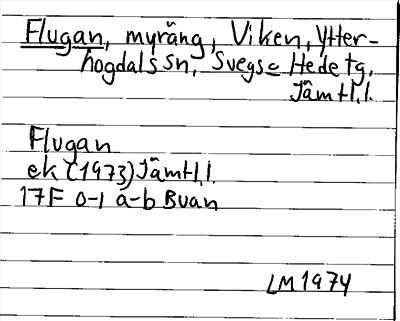 Flugan, myräng, Viken, Ytter-
hogdals sn, Svegs o Hede tg,
Jämtl.l.
Flugan
ek (1973) Jämtl.l.
17F 0-1 a-b Buan
LM 1974